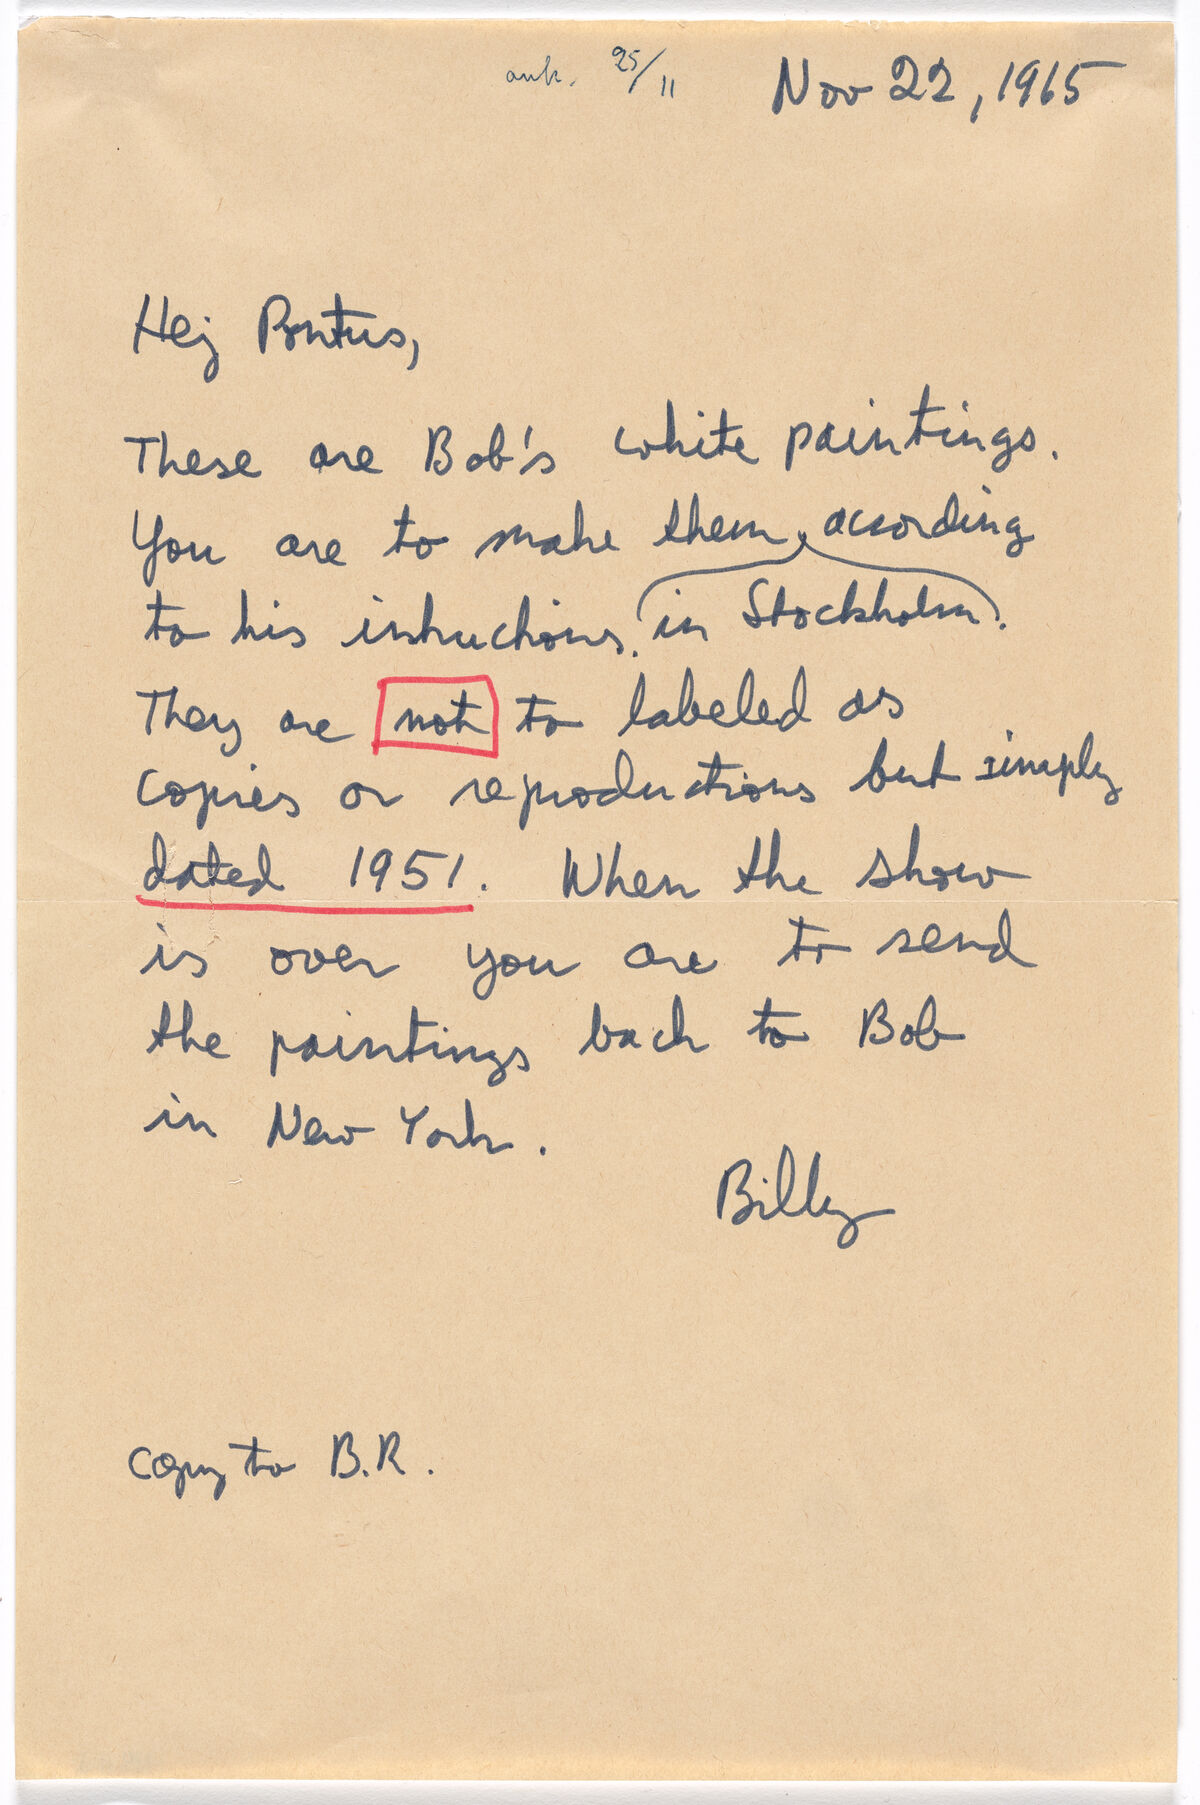 ank. 25/11
Nov 22, 1965
Hej Pontus,
These are Bob's white paintings.
You are to make them, according
to his intructions, (in Stockholm).
They are not to labeled as
copies or reproductions but simply
dated 1951. When the show
is over you are to send
the paintings back to Bob
in New York.
Billy
copy to B.R.